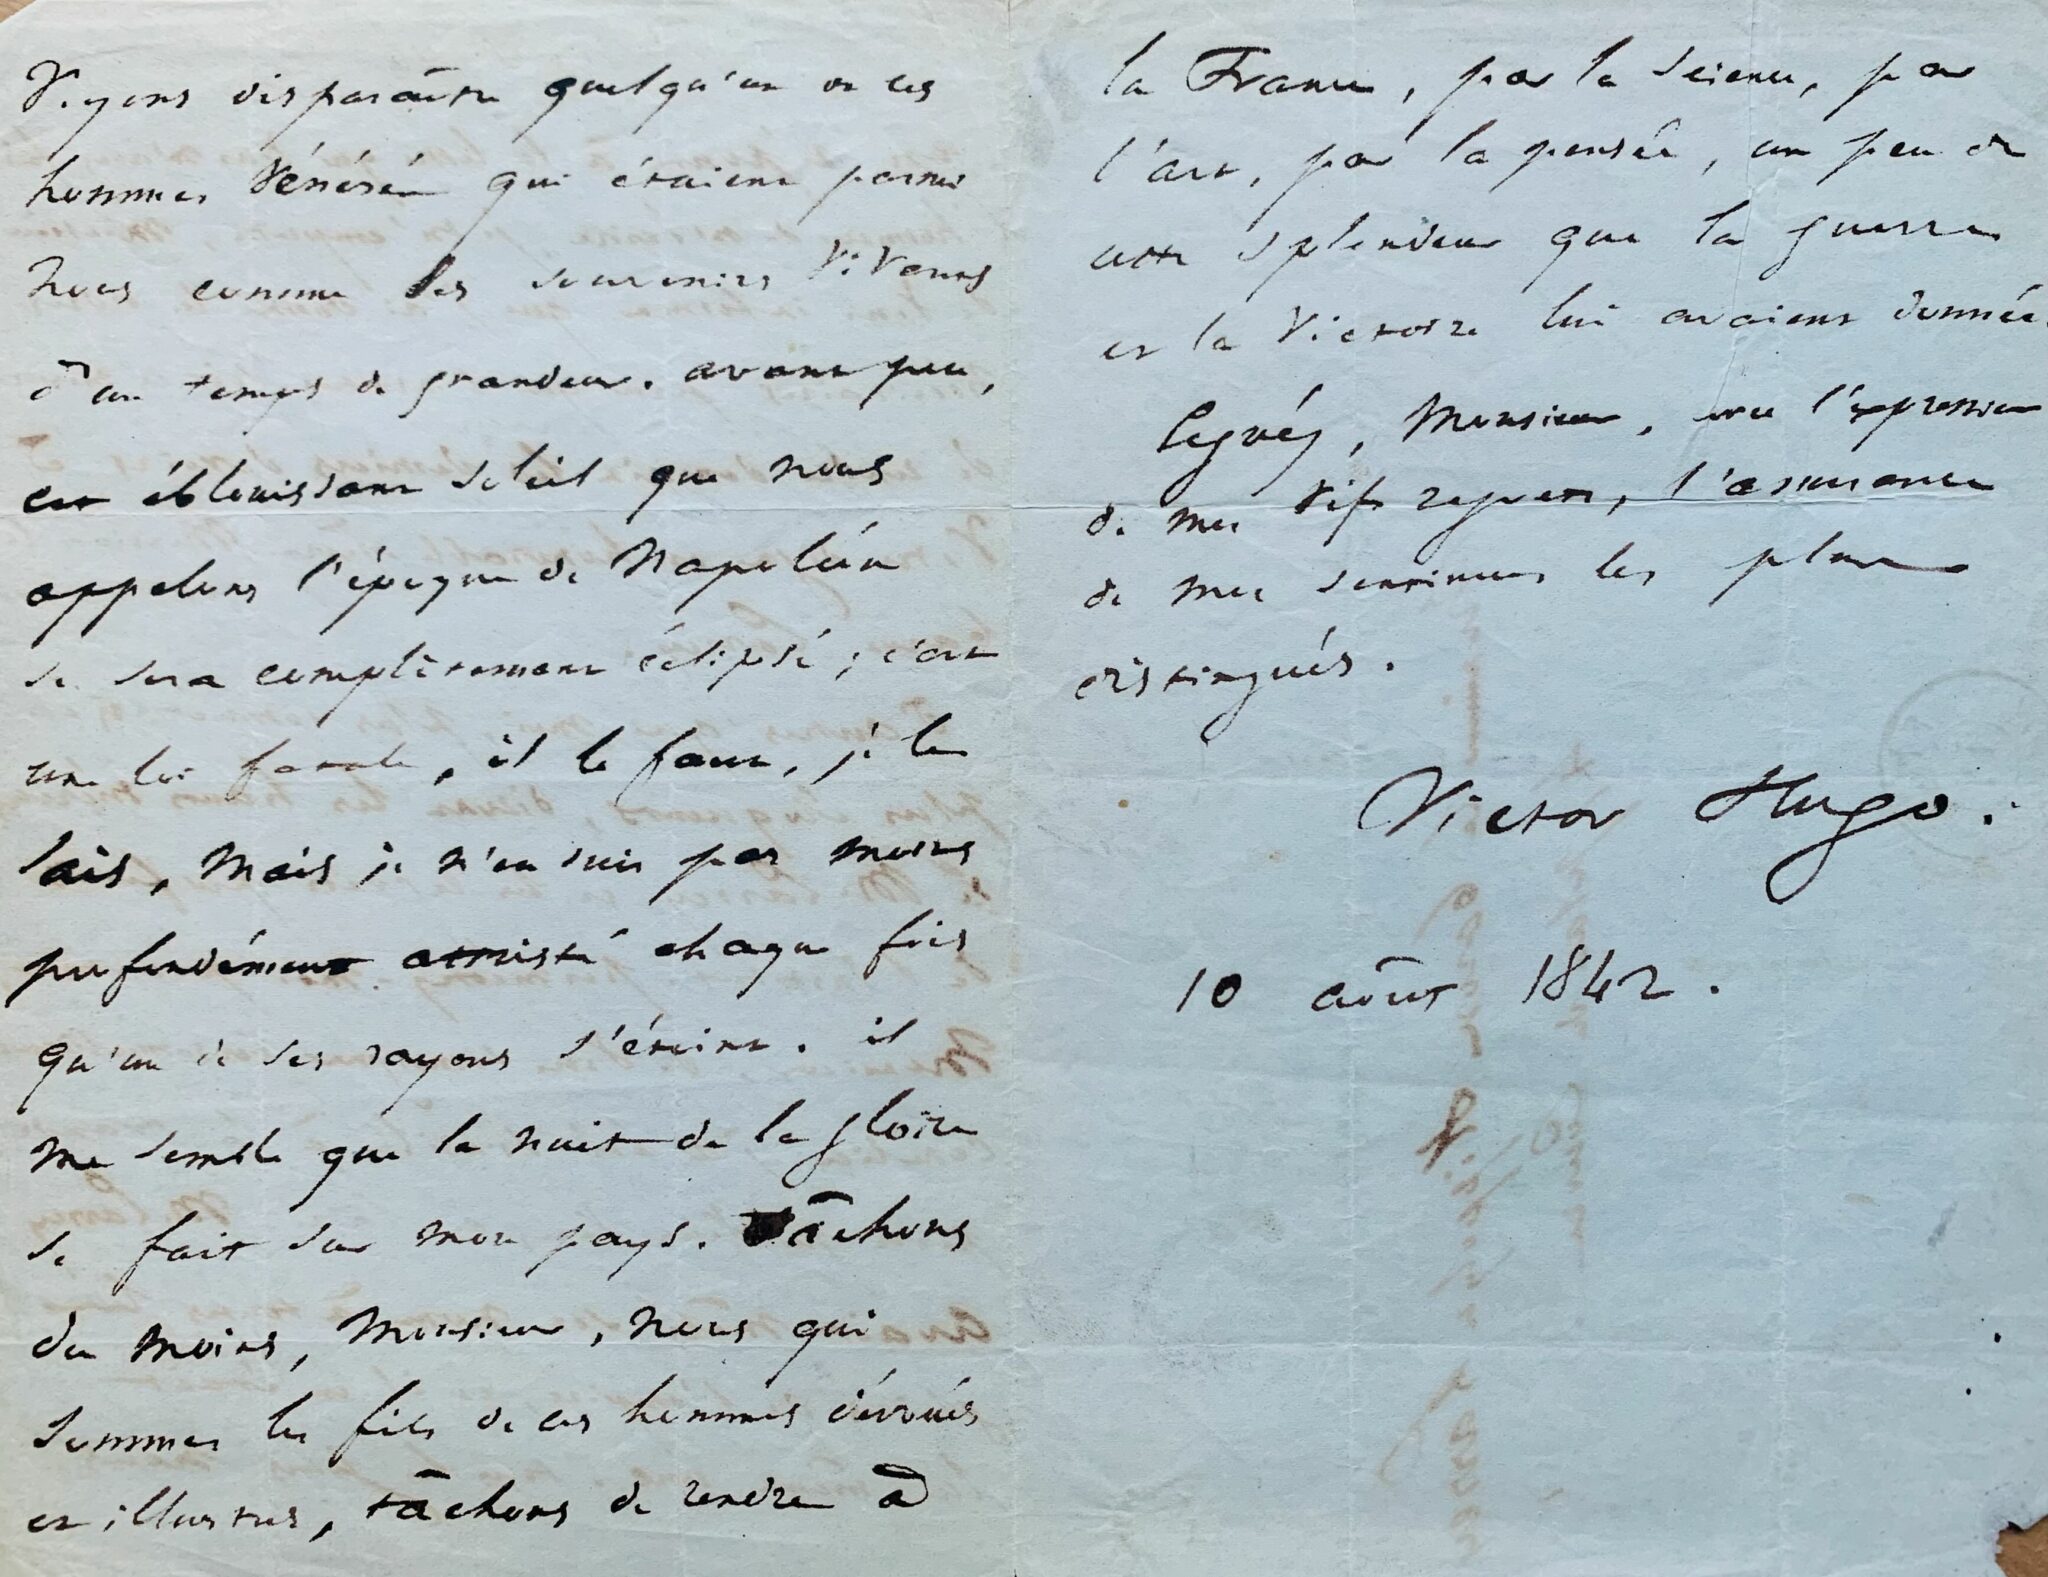 voyons disparaître quelqu'un de ces
hommes vénérés qui étaient parmi
nous comme des souvenirs vivants
d'un temps de grandeur. avant peu,
cet éblouissant soleil que nous
appelons l'époque de Napoléon
se sera complètement éclipsé ; c'est
une loi fatale, il le faut, je le
sais, mais je n'en suis pas moins
profondément attristé chaque fois
qu'un de ses rayons s'éteint. il
me semble que la nuit de la gloire
se fait sur mon pays. Tâchons
du moins, Monsieur, nous qui
sommes les fils de ces hommes dévoués
et illustres, tâchons de rendre à
la France, par la science, par
l'art, par la pensée, un peu de
cette splendeur que la guerre
et la victoire lui avaient donnée.
Agréez, Monsieur, avec l'expression
de mes vifs regrets, l'assurance
de mes sentiments les plus
distingués.
Victor Hugo.
10 août 1842.